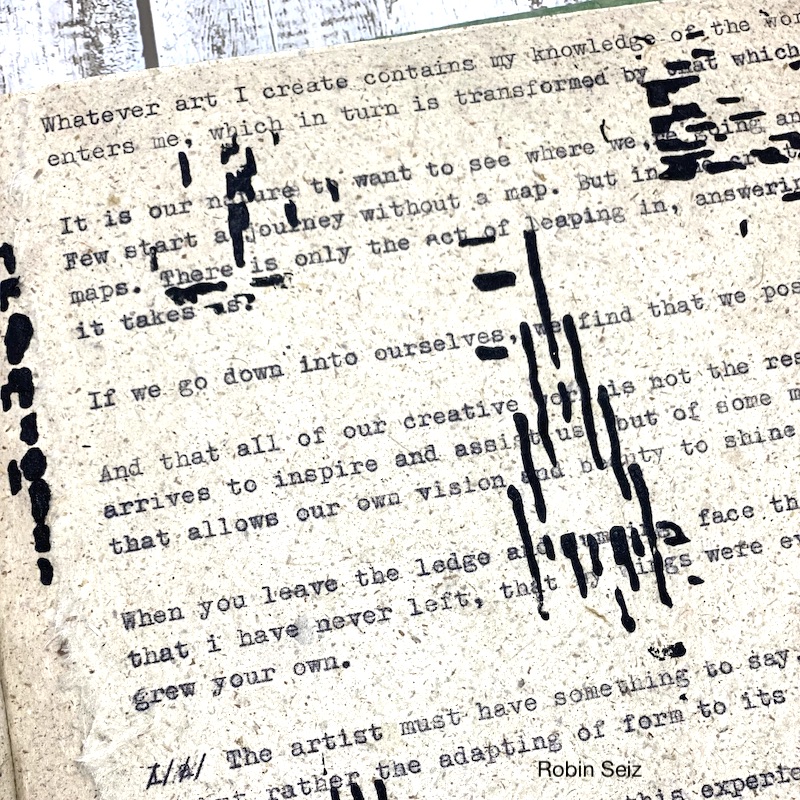 Whatever art I create contains my knowledge of the
enters me, which in turn is transformed by that which
It is our nature to want to see where we going
Few start a journey without a map. But in
maps. There is only the act of leaping in,
it takes us?
If we go down into ourselves, we find that we
And that all of our creative is not the
arrives to inspire and assist us but of some
that allows our own vision and beauty to shine
When you leave the ledge and face
that i have never left, that wings were
grew your own.
The artist must have something to say,
rather the adapting of form to its
this
Robin Seiz